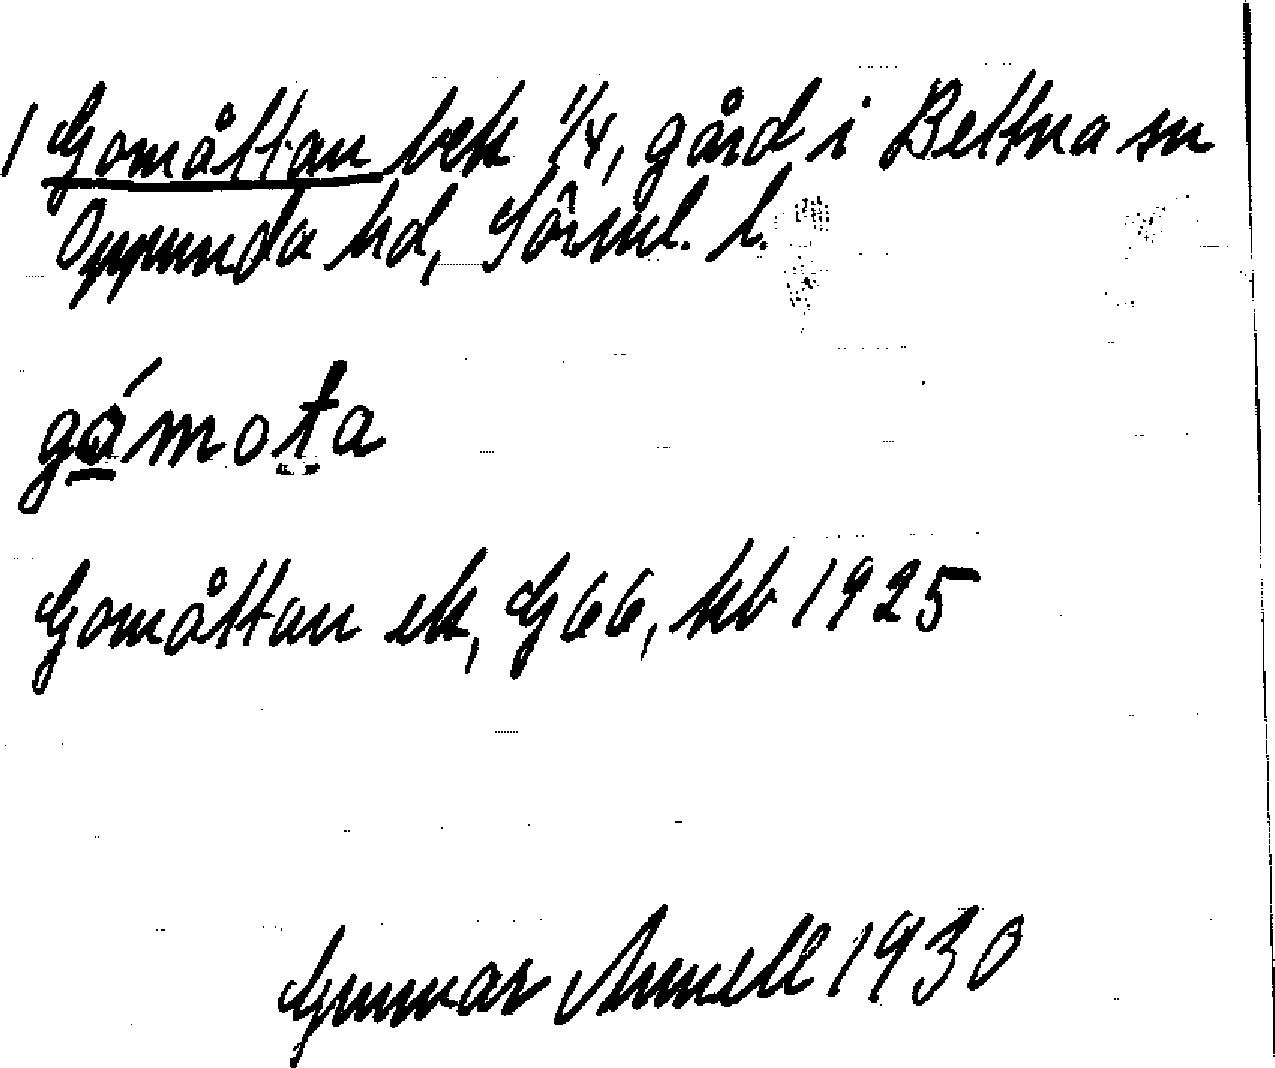 1 Gomåttan bek 1/4, gård i Bettna sn
Oppunda hd, Sörml. l.
gǻmota
Gomåttan ek, G66, kb 1925
Gunnar Annell 1930